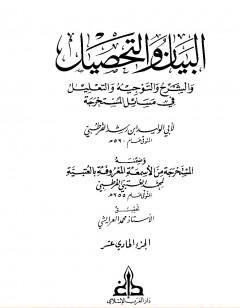 البيان والتحصيل
والشرح والتوجيه والتعليل
في مسائل المستخرجة
لأبي الوليد ابن رشد القرطبي
المتوفى عام ٥٢٠هـ
وضمنه
المستخرجة من الأسمعة المعروفة بالعتبية
لمحمد العتبي القرطبي
المتوفى عام ٢٥٥هـ
تحقيق
الأستاذ محمد العرايشي
الجزء الحادي عشر
دار الغرب الإسلامي